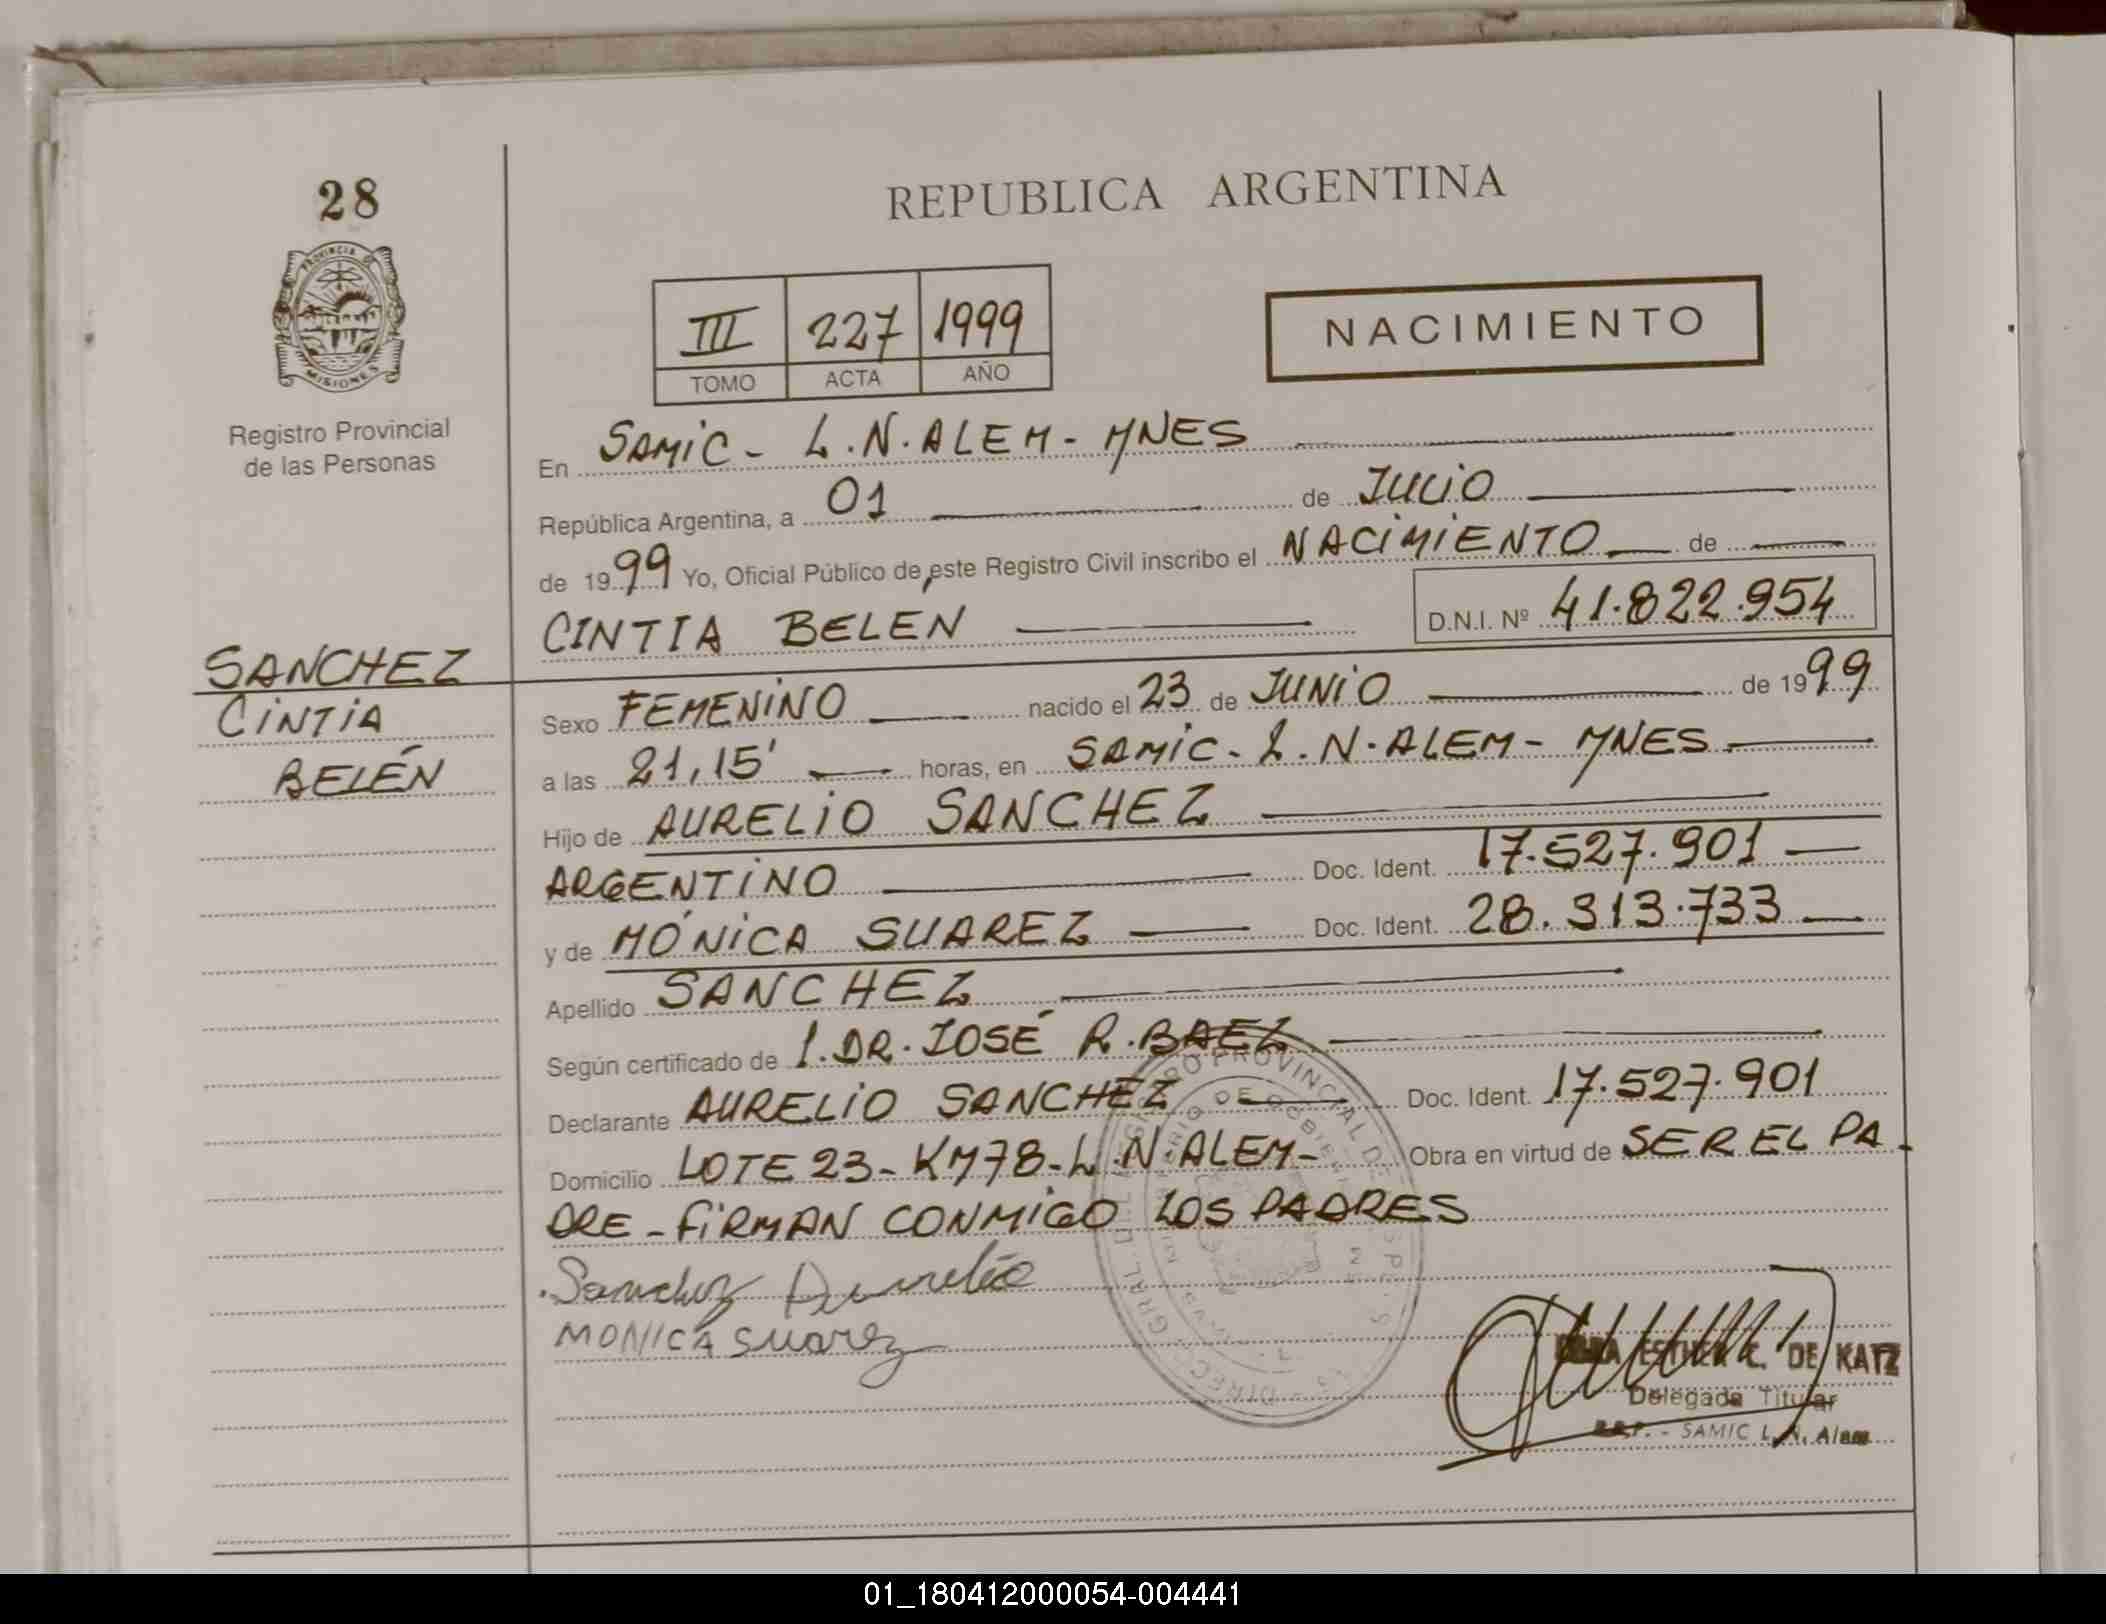 28
REPUBLICA ARGENTINA
PROVINCIA DE
MISIONES
III 227 1999
TOMO ACTA AÑO
NACIMIENTO
Registro Provincial
de las Personas
En SAMIC - L.N.ALEM - MNES
República Argentina, a 01 de JULIO
de 1999 Yo, Oficial Público de este Registro Civil inscribo el NACIMIENTO de
CINTIA BELEN D.N.I. Nº 41.822.954
SANCHEZ
CINTIA
BELÉN
Sexo FEMENINO nacido el 23 de JUNIO de 1999
a las 21,15' horas, en SAMIC - L.N.ALEM - MNES
Hijo de AURELIO SANCHEZ
ARGENTINO Doc. Ident. 17.527.901
y de MÓNICA SUAREZ Doc. Ident. 28.313.733
Apellido SANCHEZ
Según certificado de 1.DR.JOSÉ R.BAEZ
Declarante AURELIO SANCHEZ Doc. Ident. 17.527.901
Domicilio LOTE 23 - KM78 - L.N.ALEM - Obra en virtud de SER EL PA-
DRE - FIRMAN CONMIGO LOS PADRES
Sanchez Aurelio
MONICA suarez
ESTHER C. DE KATZ
Delegada Titular
R.R.P. - SAMIC L.N. Alem
01_180412000054-004441